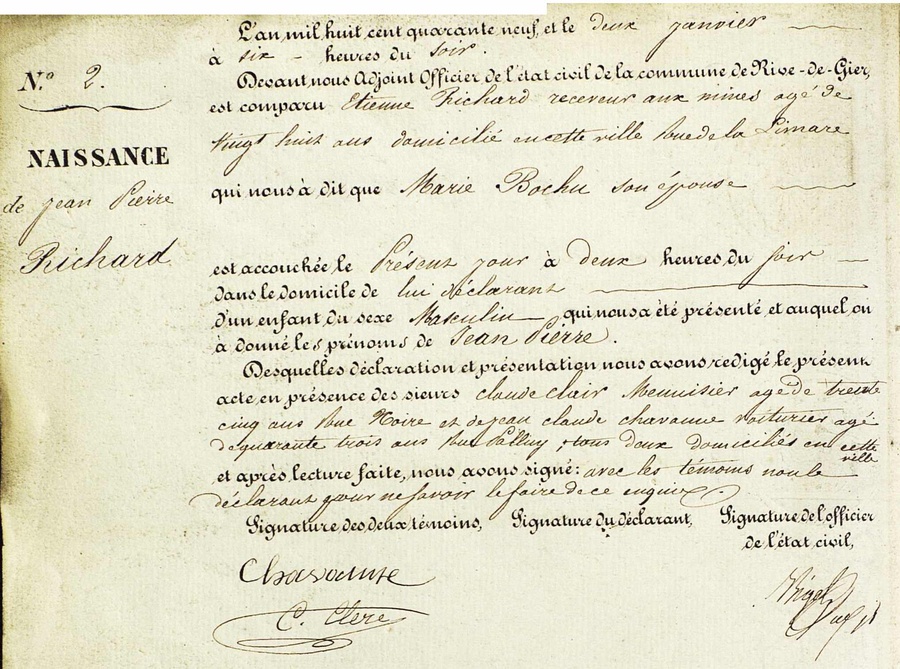 L'an mil huit cent quarante neuf, et le deux janvier
à six heures du soir.
Devant nous Adjoint Officier de l'état civil de la commune de Rive-de-Gier,
est comparu Etienne Richard receveur aux mines agé de
vingt huit ans domicilié en cette ville Rue de la Limare
qui nous à dit que Marie Bochu son épouse
est accouchée le Présent jour à deux heures du soir
dans le domicile de lui déclarant
d'un enfant du sexe Masculin qui nous a été présenté et auquel on
à donné les prénoms de Jean Pierre.
Desquelles déclaration et présentation nous avons redigé le présent
acte, en présence des sieurs claude clair Menuisier agé de trente
cinq ans Rue Noire et de jean claude chavanne voiturier agé
de quarante trois ans Rue tous deux domiciliés en cette
ville
et après lecture faite, nous avons signé: avec les témoins non le
déclarant pour ne savoir le faire de ce enquis.
Signature des deux témoins, Signature du déclarant, Signature de l'officier
de l'état civil,
N.º 2.
NAISSANCE
de jean Pierre
Richard
Chavanne
C. Clere